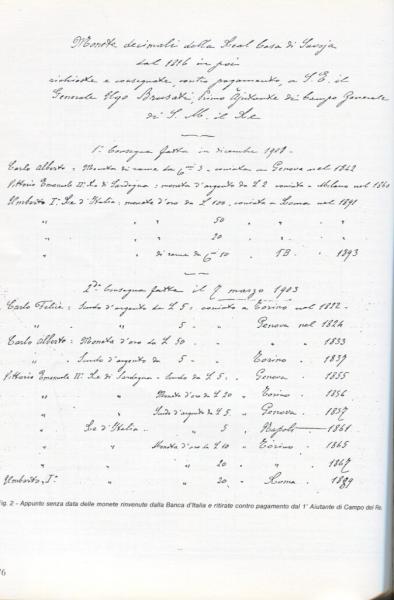 Monete decimali della Real Casa di Savoja
dal 1816 in poi
richieste e consegnate, contro pagamento, a S. E. il
Generale Ugo Brusati, Primo Ajutante di Campo Generale
di S. M. il Re
1ª Consegna fatta in dicembre 1901.
Carlo Alberto = Moneta di rame da c. 3 - coniata a Genova nel 1842
Vittorio Emanuele II: Re di Sardegna: moneta d'argento da L. 2 coniata a Milano nel 1860
Umberto I: Re d'Italia: moneta d'oro da L. 100, coniata a Roma nel 1891
" " 50 " " "
" " 20 " " "
" " di rame da c. 10 . TB . 1893
2da Consegna fatta il 7 marzo 1903
Carlo Felice: Scudo d'argento da L. 5: coniato a Torino nel 1822 -
" " " 5 - Genova nel 1824
Carlo Alberto: Moneta d'oro da L. 50 " 1833
" Scudo d'argento da 5 - Torino . 1837
Vittorio Emanuele II: Re di Sardegna - Scudo da L. 5 . Genova . 1855
" " Moneta d'oro da L. 20 " Torino . 1856
" " Scudo d'argento da L. 5 . Genova . 1857
" Re d'Italia " 5 . Napoli 1861
" " Moneta d'oro da L. 10 . Torino . 1865
" " " 20 " . 1867
Umberto I: " " 20 . Roma .
Fig. 2 - Appunto senza data delle monete rinvenute dalla Banca d'Italia e ritirate contro pagamento dal 1° Aiutante di Campo del Re.